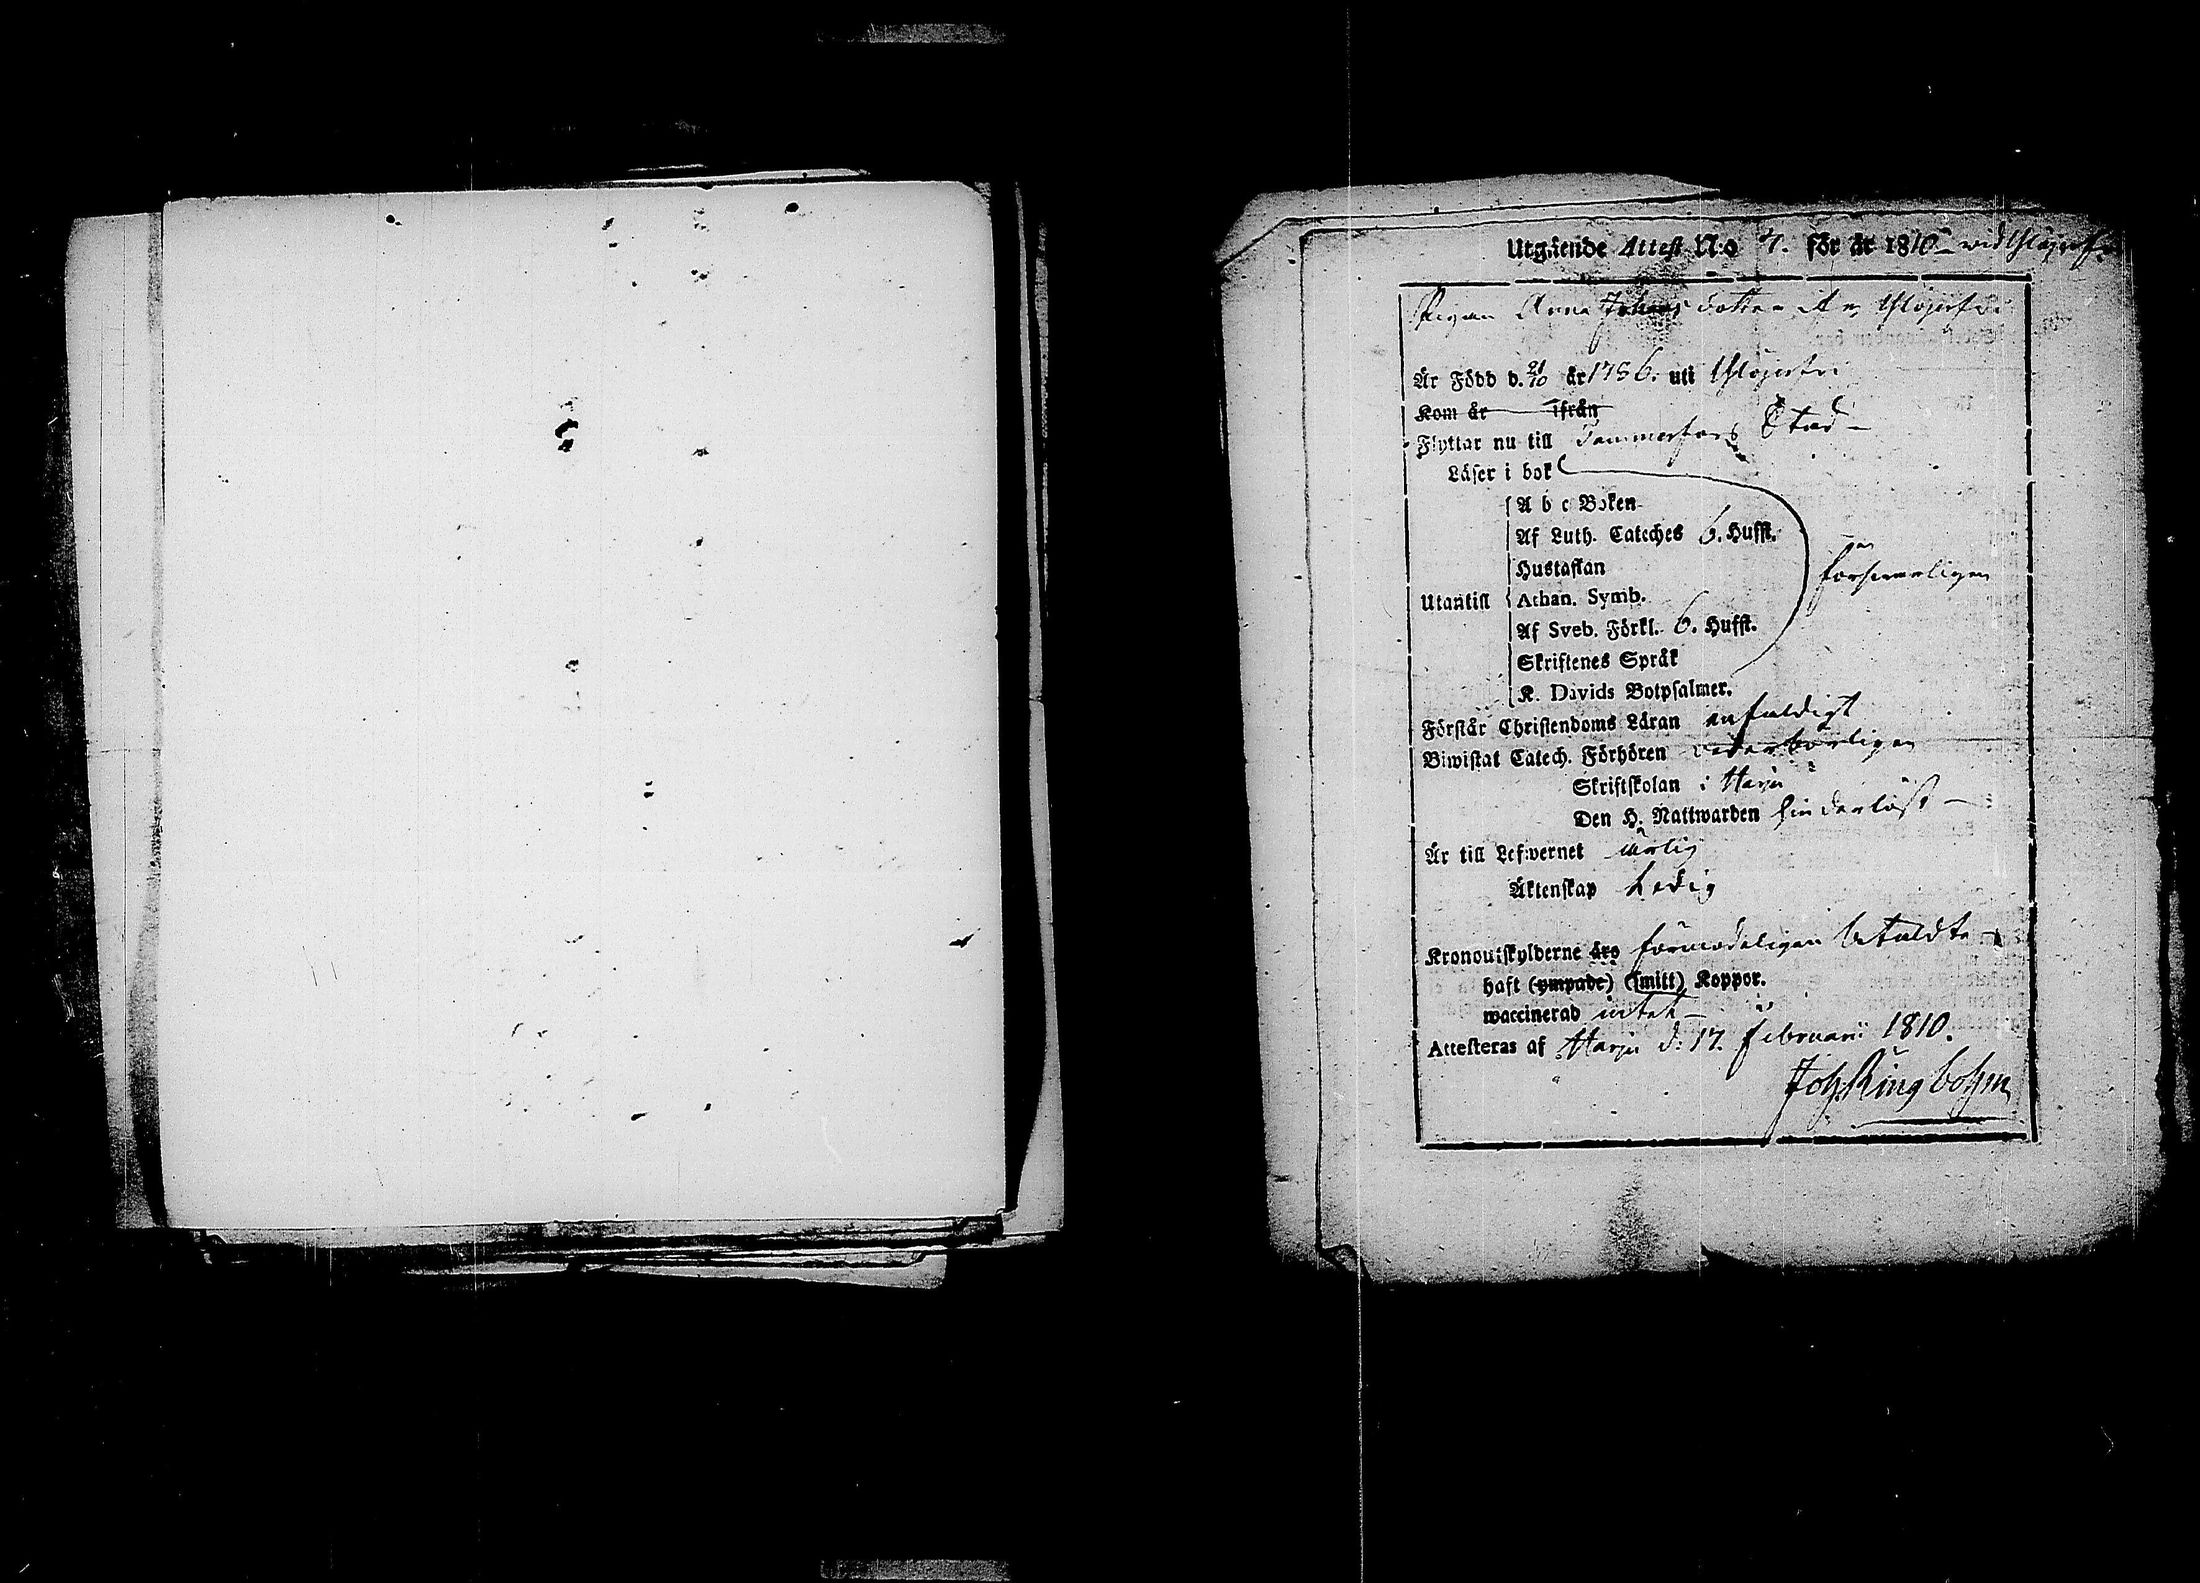 Utgående Attest N:o 7. för år 1810 wid Ylöjerfvi
Pigan Anna Johans dotter ifr. Ylöjerfvi
Är Född d. 21/10 år 1786. uti Ylöjerfvi
Kom år ifrån
Flyttar nu till Tammerfors Stad
Läser i bok
A b c Boken
Af Luth. Cateches 6. Hufst.
Hustaflan
försvarligen
Utantill Athan. Symb.
Af Sveb. Förkl. 6. Hufst.
Skriftenes Språk
K. Davids Botpsalmer.
Förstår Christendoms Läran enfaldigt
Biwistat Catech. Förhören vederbörligen
Skriftskolan i Harju
Den H. Nattwarden hinderlöst
Är till Lefwernet ärlig
Äktenskap Ledig
Kronoutskylderne äro förmodeligen betaldte
haft (ympade) (smitt) Koppor.
waccinerad intet
Attesteras af Harju d: 17. Februarii 1810.
Joh. Ringbohm